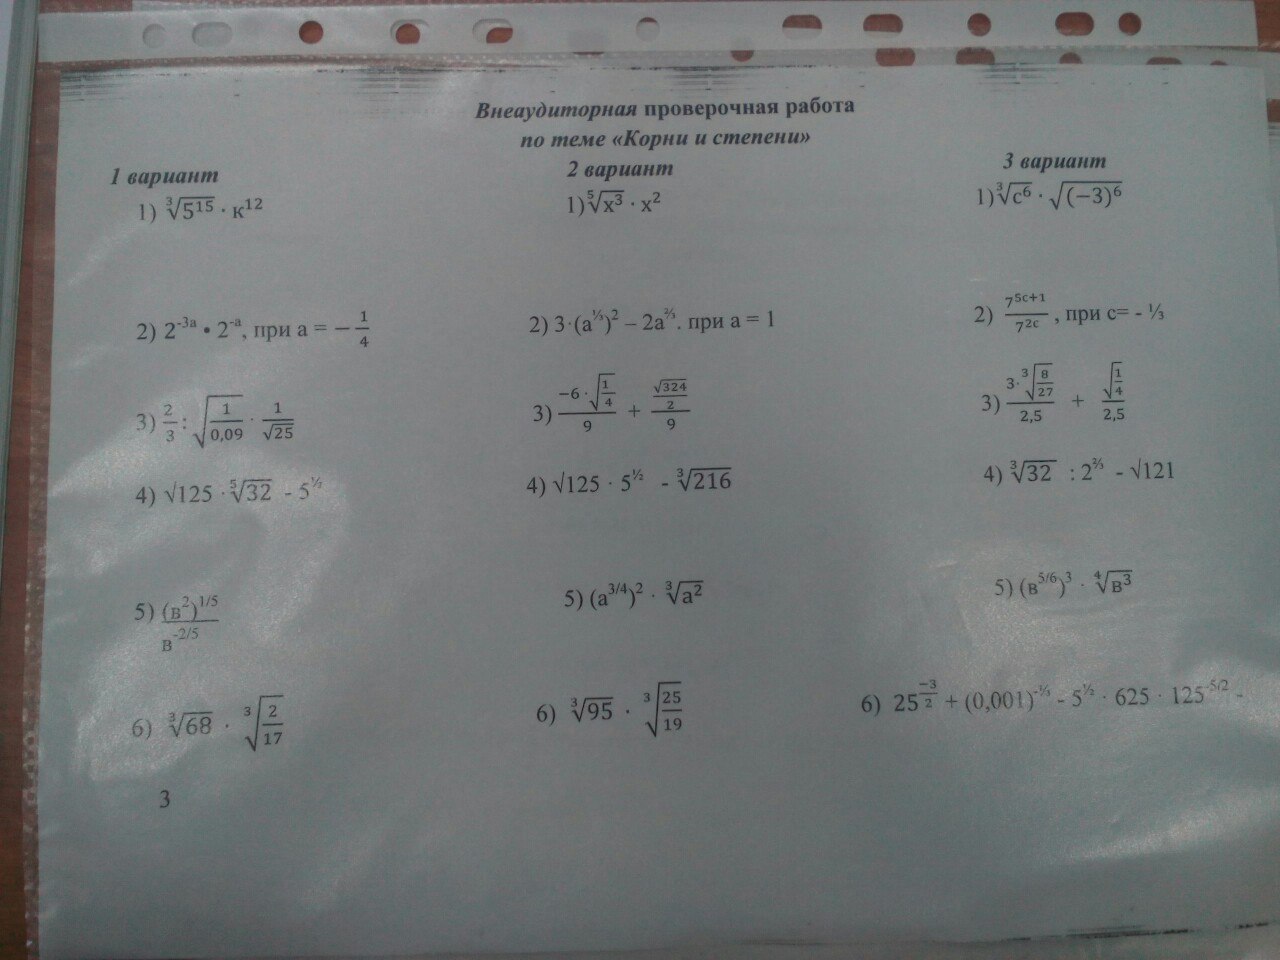 Внеаудиторная проверочная работа
по теме «Корни и степени»
1 вариант
1) ∛(5¹⁵) · к¹²
2) 2^(-3а) • 2^(-а), при а = −1/4
3) 2/3 : √(1/0,09) · 1/√25
4) √125 · ⁵√32 - 5^½
5) (в²)^(1/5) / в^(-2/5)
6) ∛68 · ∛(2/17)
3
2 вариант
1) ⁵√(х³) · х²
2) 3·(а^⅓)² – 2а^⅔. при а = 1
3) (−6 · √(1/4))/9 + (√324/2)/9
4) √125 · 5^½ - ∛216
5) (а^(3/4))² · ∛(а²)
6) ∛95 · ∛(25/19)
3 вариант
1) ∛(с⁶) · √((−3)⁶)
2) 7^(5с+1) / 7^(2с) , при с= - ⅓
3) (3·∛(8/27))/2,5 + √(1/4)/2,5
4) ∛32 : 2^⅔ - √121
5) (в^(5/6))³ · ⁴√(в³)
6) 25^(−3/2) + (0,001)^(-⅓) - 5^½ · 625 · 125^(-5/2) -